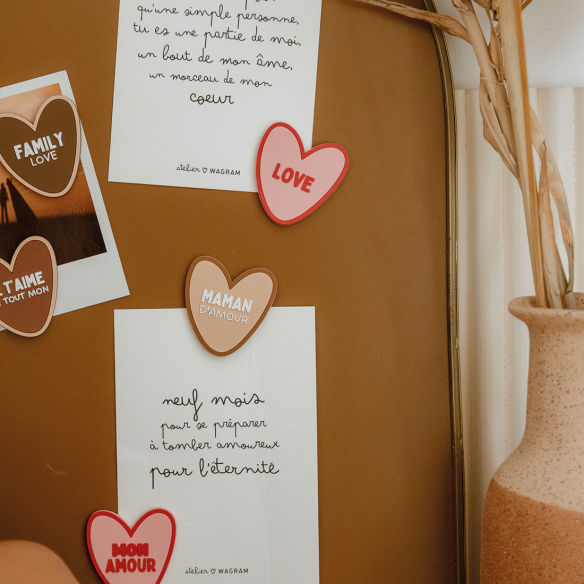 qu'une simple personne,
tu es une partie de moi,
un bout de mon âme,
un morceau de mon
coeur
atelier ♡ WAGRAM
FAMILY
LOVE
LOVE
T'AIME
TOUT MON
MAMAN
D'AMOUR
neuf mois
pour se préparer
à tomber amoureux
pour l'éternité
atelier ♡ WAGRAM
MON
AMOUR